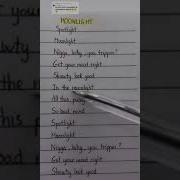 MOONLIGHT
Spotlight
Moonlight
Nigga, why...you trippin?
Get your mood right
Shawty look good
In the moonlight
All this pussy
So bad mind
Spotlight
Moonlight
Nigga, why...you trippin?
Get your mood right
Shawty look good